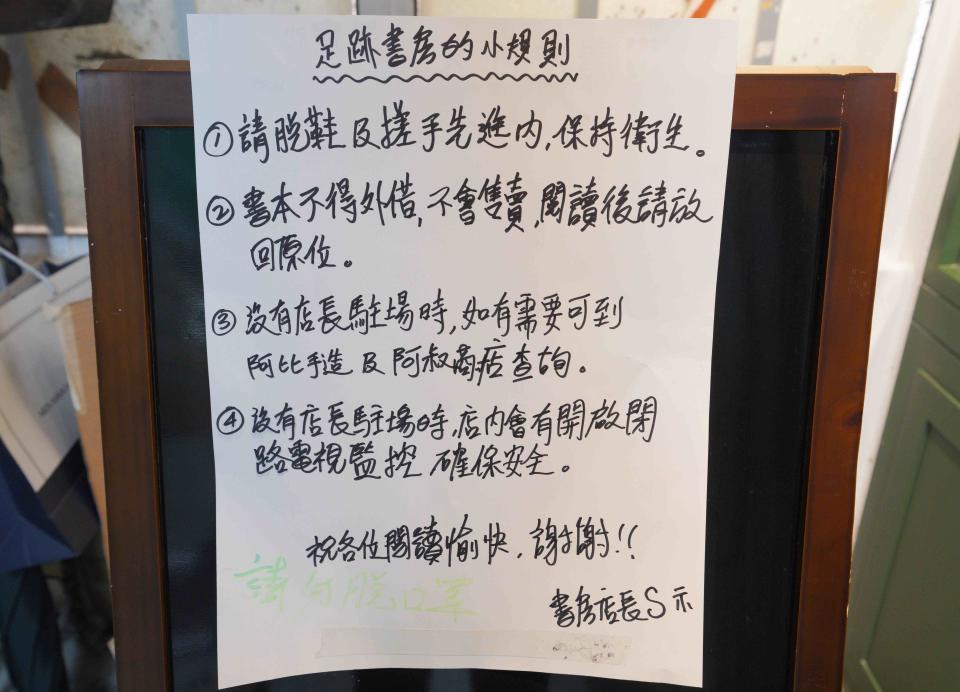 足跡書房的小規則
①請脫鞋及搓手先進內,保持衛生。
②書本不得外借,不會售賣,閱讀後請放
回原位。
③沒有店長駐場時,如有需要可到
阿比手造及阿叔商店查詢。
④沒有店長駐場時,店內會有開啟閉
路電視監控 確保安全。
祝各位閱讀愉快,謝謝!!
請勿脫口罩
書房店長S示